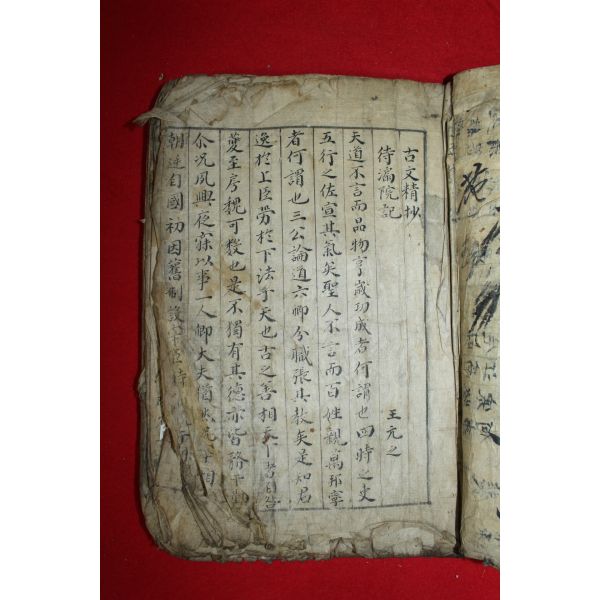 古文精抄
待漏院記 王元之
天道不言而品物亨歲功成者何謂也四時之吏
五行之佐宣其氣矣聖人不言而百姓親萬邦寧
者何謂也三公論道六卿分職張其教矣是知君
逸於上臣勞於下法乎天也古之善相天下者自咎
夔至房魏可數也是不獨有其德亦皆務于
尒况夙興夜寐以事一人卿大夫猶然况 相
朝廷自國初因舊制設宰臣待